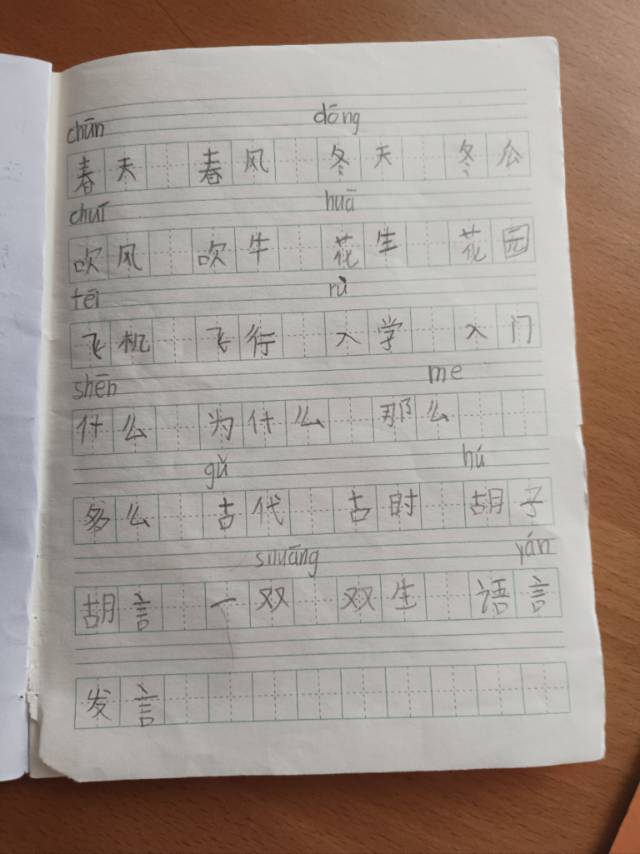 chūn dōng
春天 春风 冬天 冬公
chuī huā
吹风 吹牛 花生 花园
fēi rù
飞机 飞行 入学 入门
shēn me
什么 为什么 那么
gǔ hú
多么 古代 古时 胡子
shuāng yán
胡言 一双 双生 语言
发言